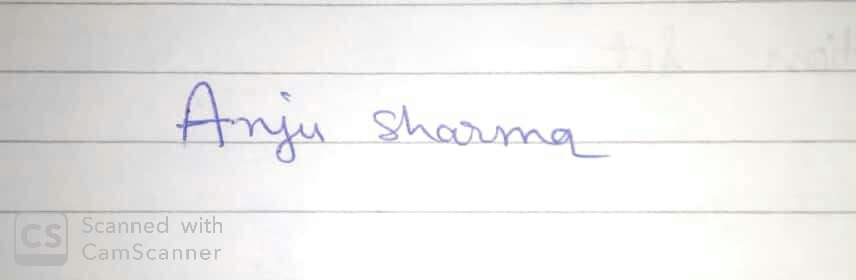 Anju Sharma
CS Scanned with
CamScanner